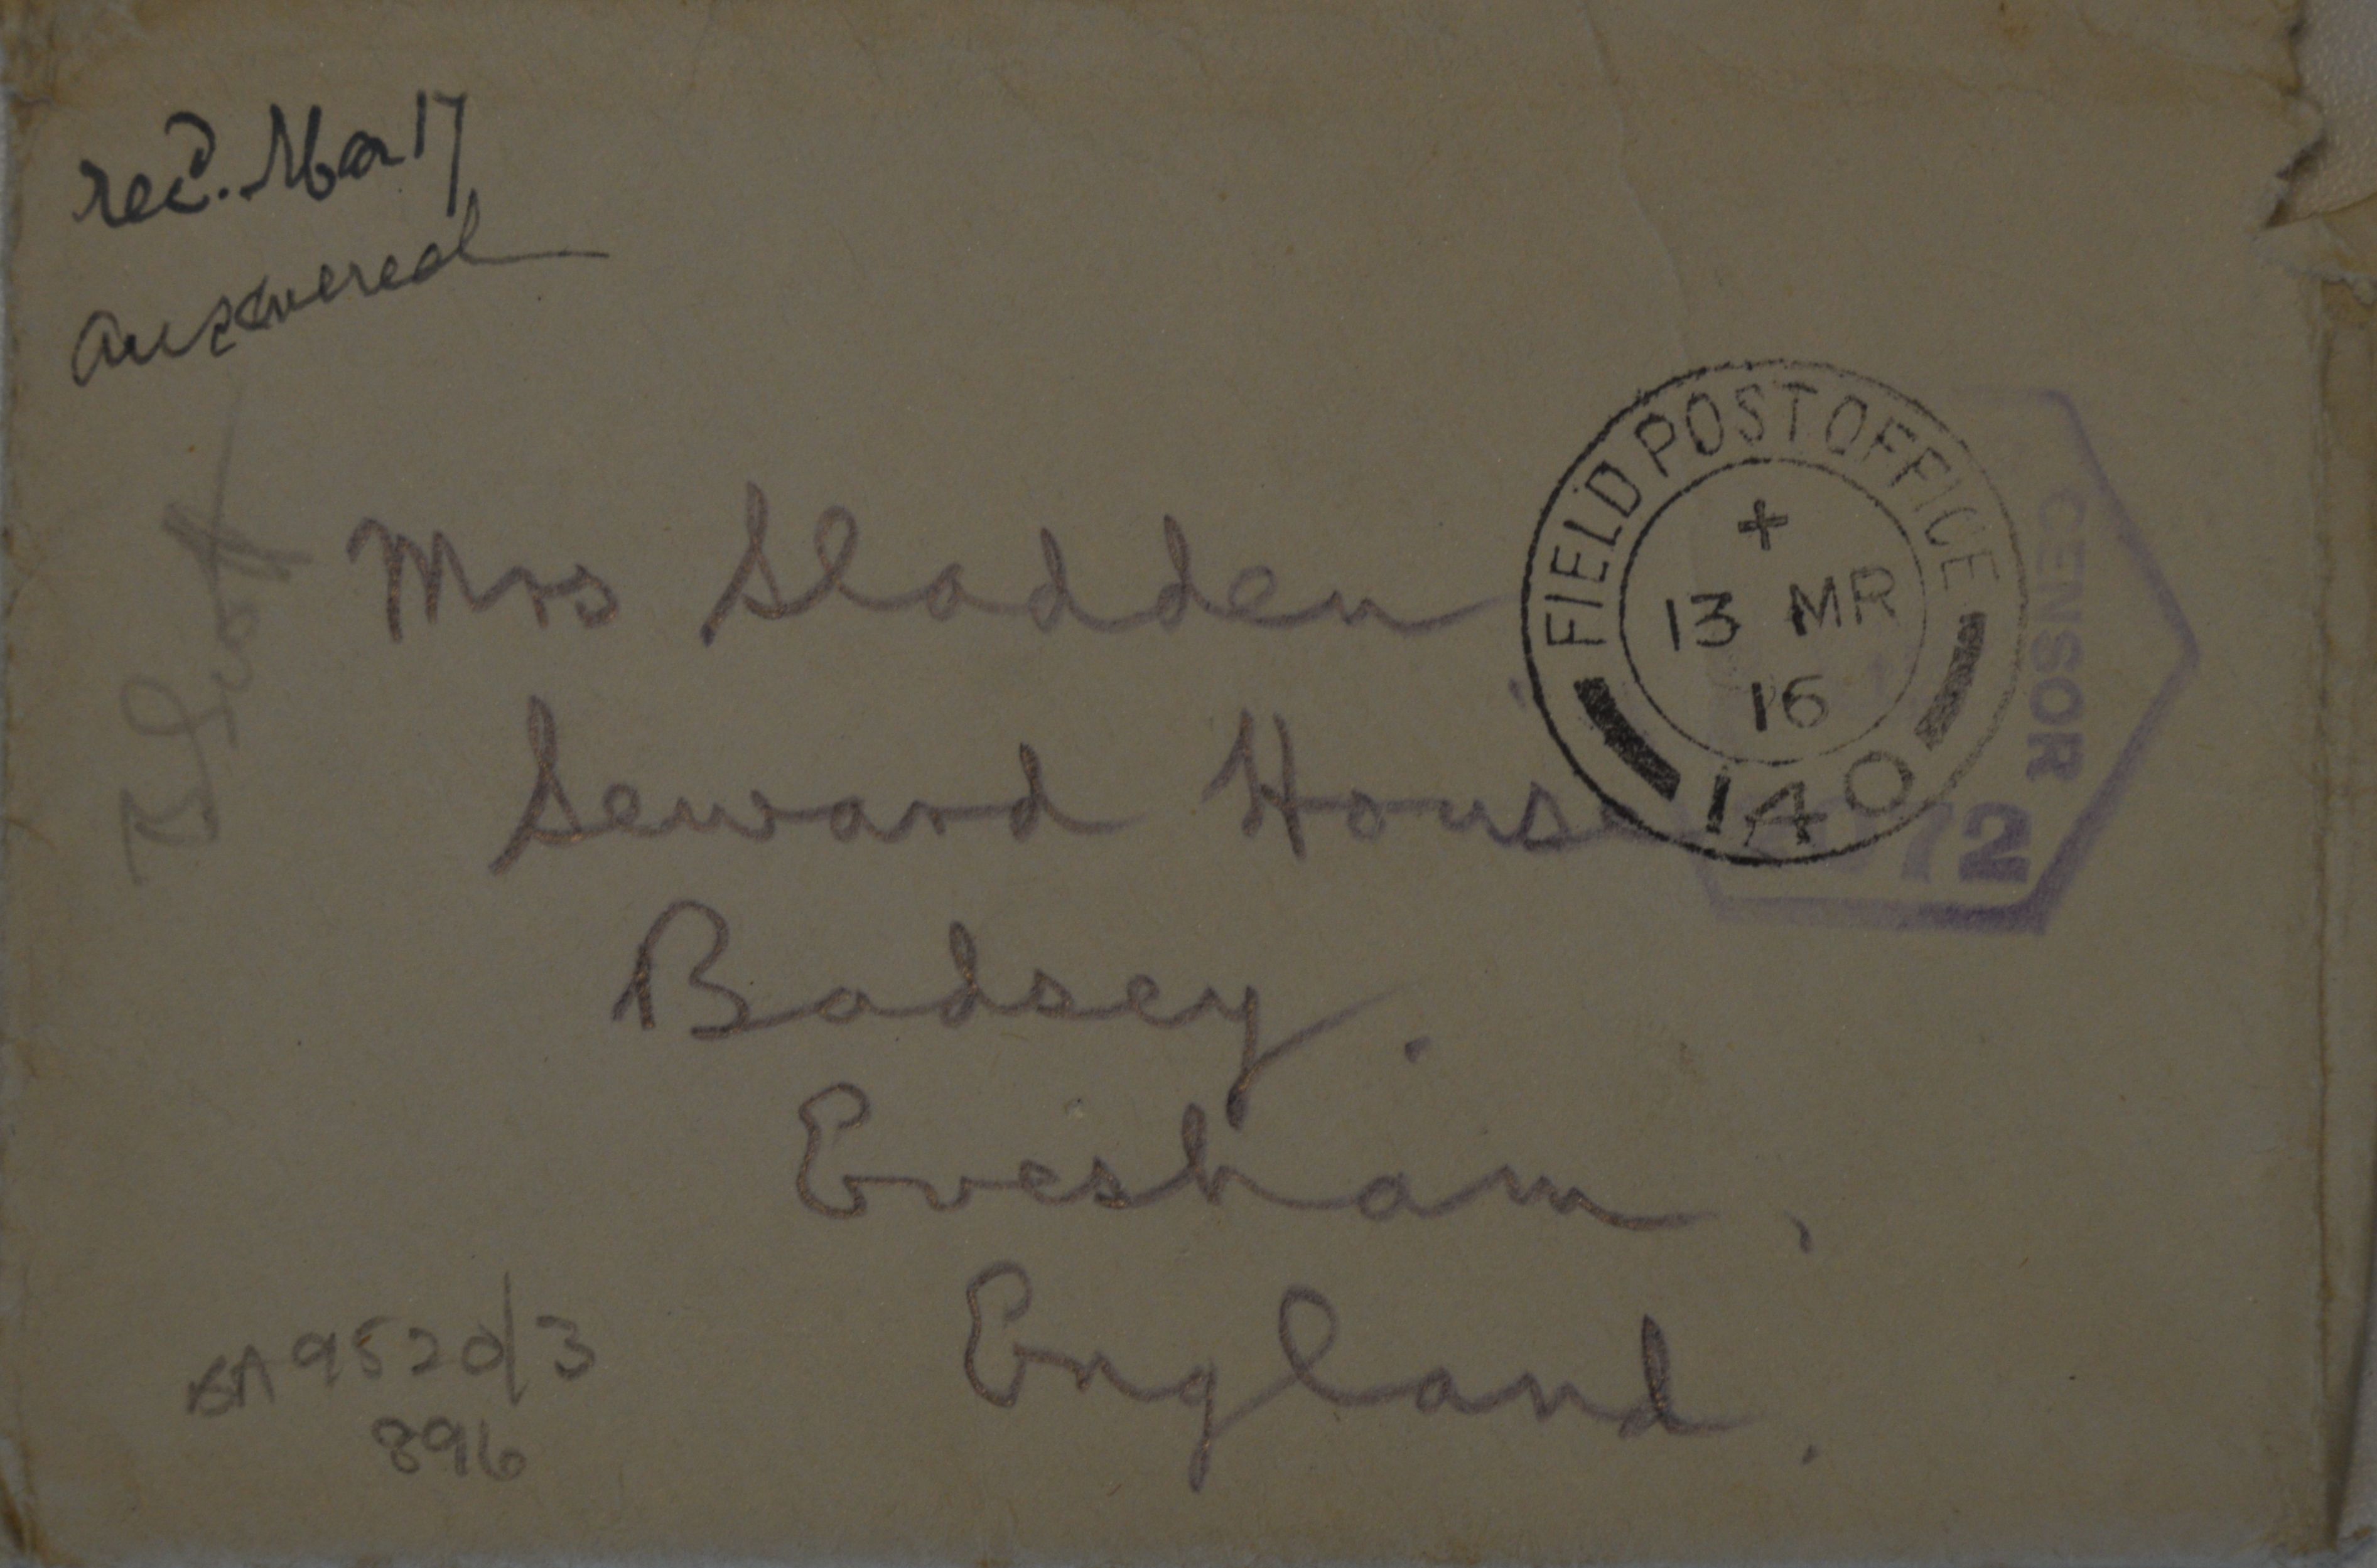 recd. Mar 17
answered
Mrs Sladden
Seward House
Badsey.
Evesham,
England.
FIELD POST OFFICE
+
13 MR
16
140
CENSOR
72
BA 9520/3
896